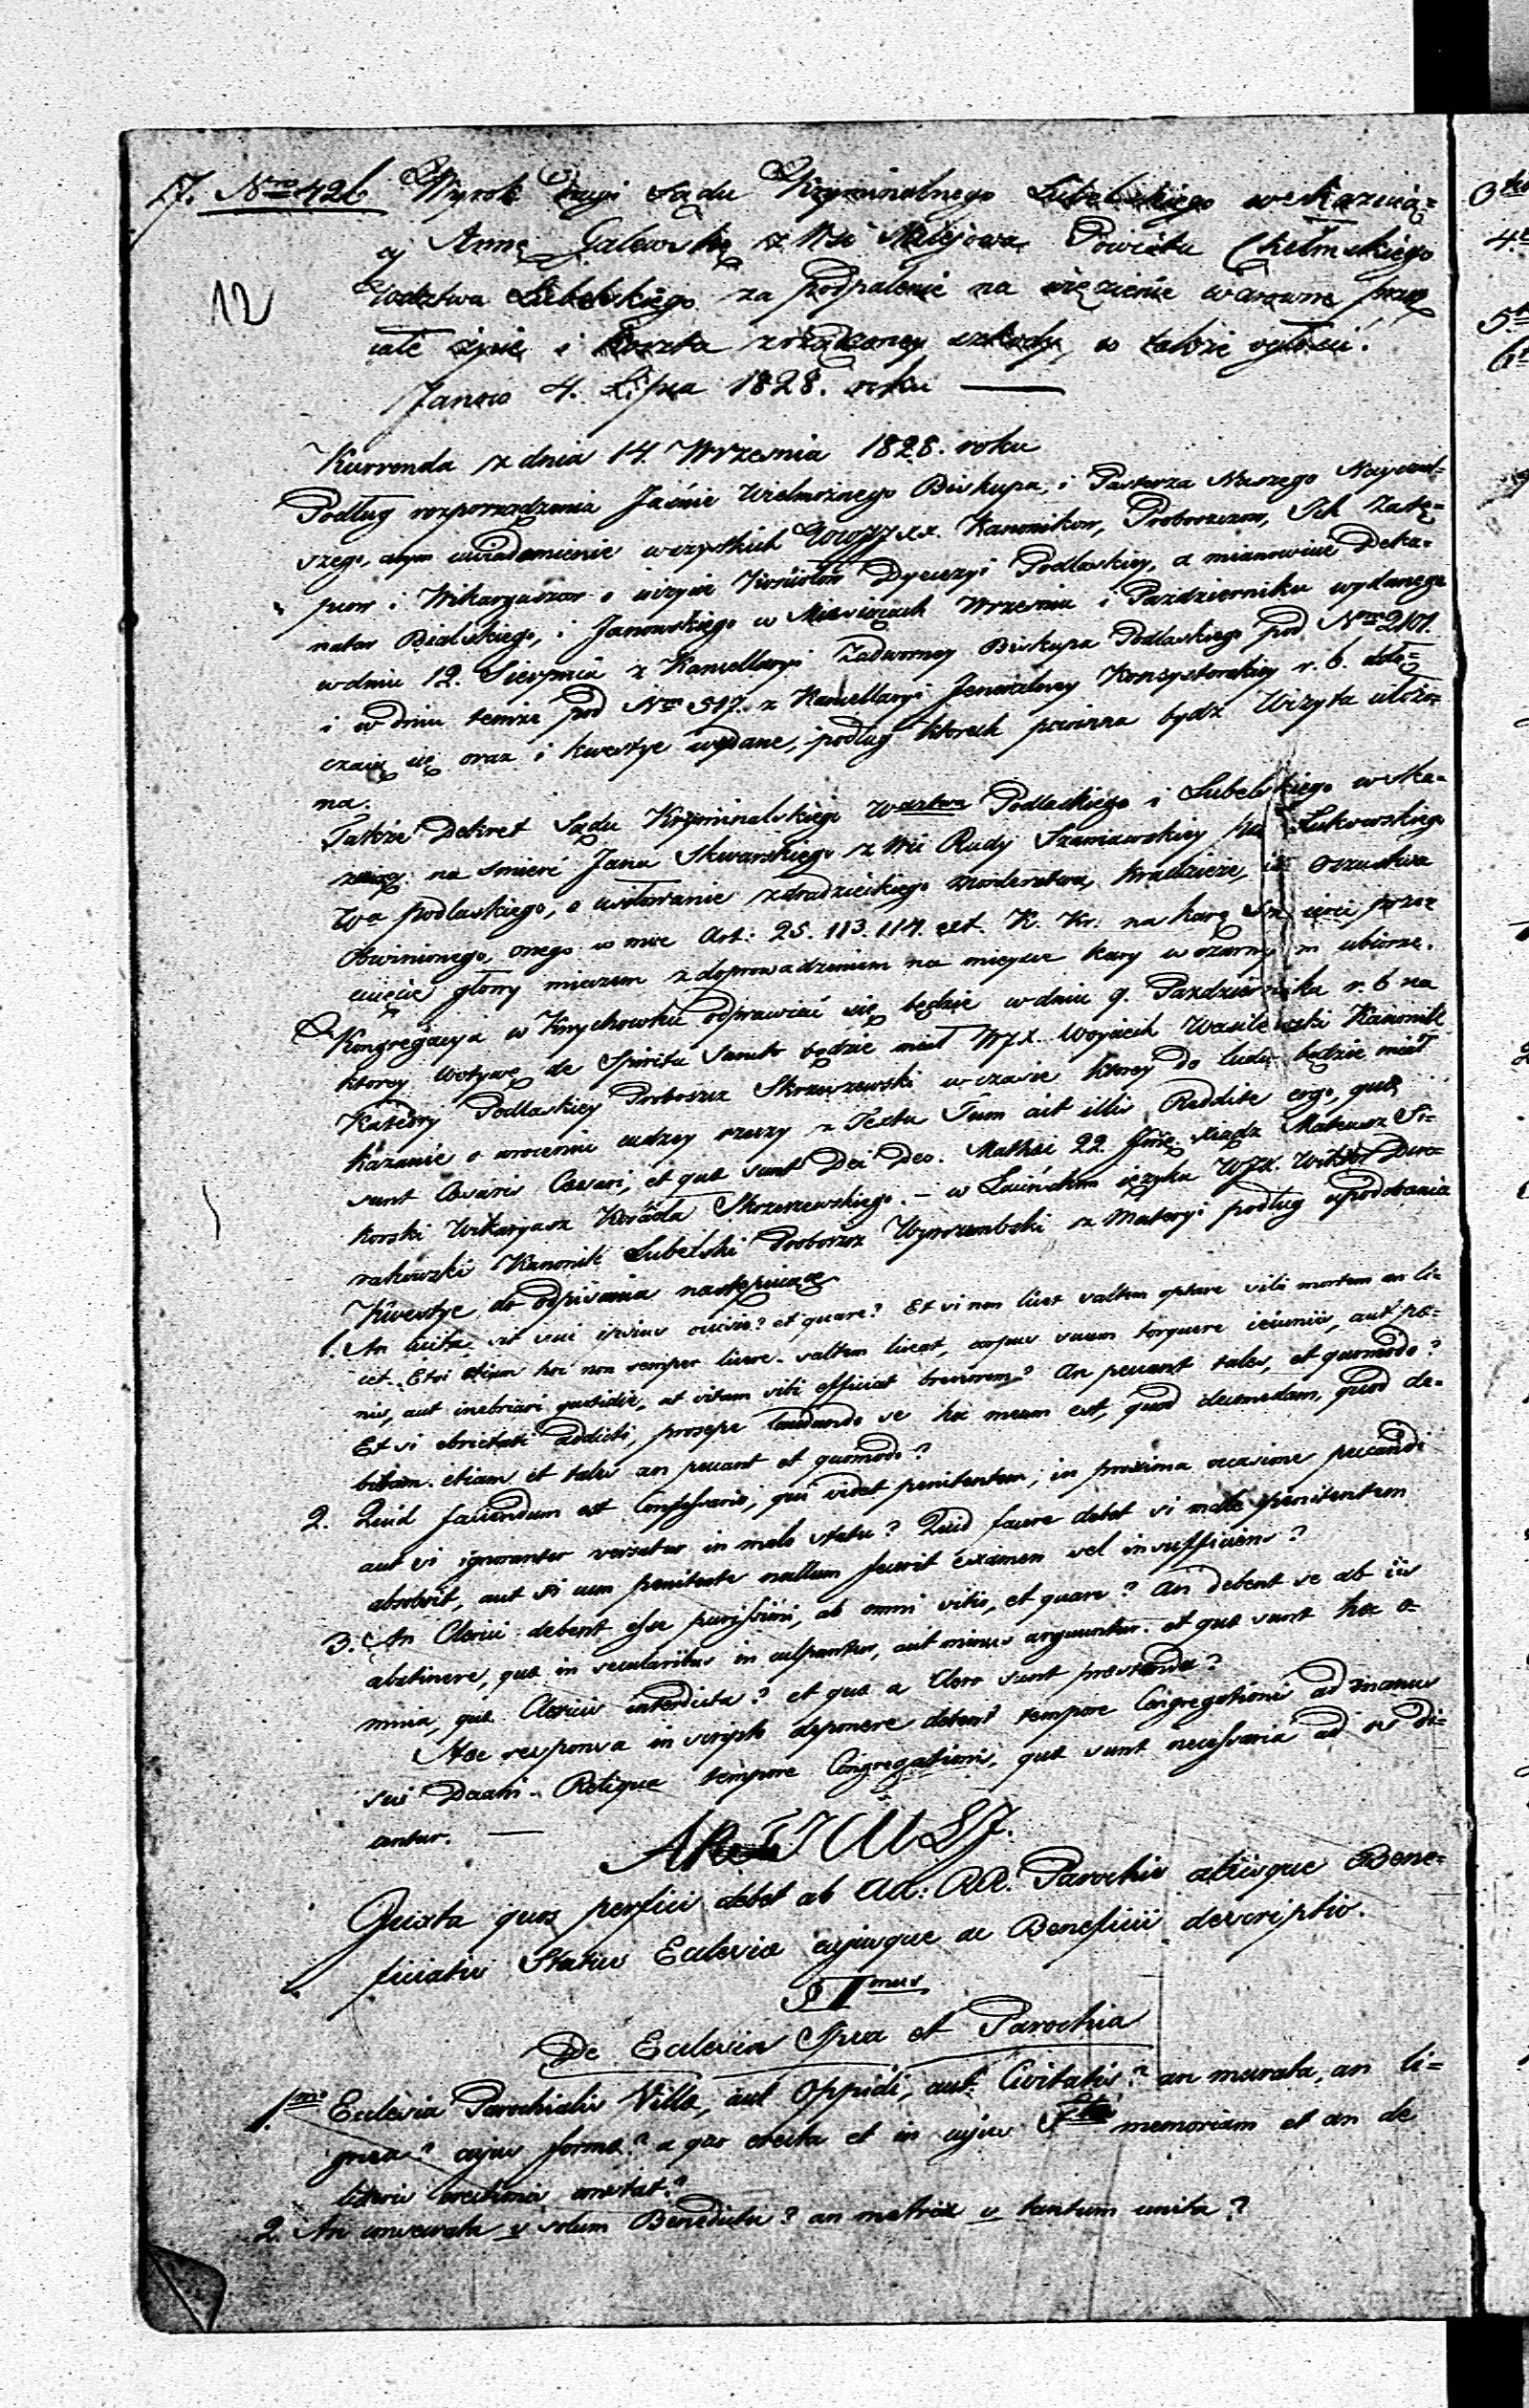 17. Nro 426 Wyrok Sądu Kryminalnego Lubelskiego w skazuią=
cy Annę Galewskę z Wsi Malejowa Powiatu Chełmskiego
Wodztwa Lubelskiego za podpalenie na więzienie warowne przez
12
całe życie i koszta zrządzoney szkody, w tabże ogłosić.
Janow 4. Lipca 1828. roku —
Kurrenda z dnia 14. Września 1828. roku
Podług rozporządzenia Jaśnie Wielmożnego Biskupa, i Pasterza Naszego
szego, uwiadomienie wszystkich WWJJXX. Kanonikow, Proboszczow, Ich Zastę=
pcow i Wikaryuszow o wizycie Kosciołów Dyecezyi Podlaskiey, a mianowicie Deka=
natow Bialskiego, i Janowskiego w Miesiącach Wrzesniu i Pazdzierniku wydanego
w dniu 12. Sierpnia z Kancellaryi Zadworney Biskupa Podlaskiego pod Nro 2101.
i w dniu temże pod Nro 517. z Kancellaryi Jeneralney Konsystorskiey r. b. dołą=
czaią się oraz i kwestye wydane, podług ktorych powinna bydź Wizyta ułożo=
na.
Także Dekret Sądu Kryminalskiego Wdztwa Podlaskiego i Lubelskiego w ska=
na smierć Jana Skwarskiego z Wsi Rudy Szaniawskiey Łukowskiego
Wa podlaskiego, o usiłowanie zdradzieckiego morderstwa, kradzieże, i oszustwa
obwinionego, onego w moc Art: 25. 113. 114. K. Kr. na karę Smierci przez
ucięcie głowy mieczem z doprowadzeniem na mieysce kary w czarnym ubiorze.
Kongregacya w Knychowku odprawiać się będzie w dniu 9. Pazdziernika r. b na
ktorey wotywę de Spiritu Sancto będzie miał WJX. Woyciech Wasilewski Kanonik
Katedry Podlaskiey Proboszcz Skrzeszewski w czasie ktorey do ludu będzie miał
kazanie o wroceniu cudzey rzeczy z Textu Tum ait illis Reddite ergo, quæ
sunt Cæsaris Cæsari, et quæ sunt Dei Deo. Mathei 22. Xiądz Mateusz Si=
korski Wikaryusz Kościoła Skrzeszewskiego. — w Łacińskim ięzyku WJX. Wiktor
Kanonik Lubelski Proboszcz Wyrozembski z Materyi podług upodobania
Kwestye do odpisania następuiące
1. An licita sit sui ipsius occisio? et quare? Et si non licet saltem optare sibi mortem an li=
cet. Etsi etiam hoc non semper licere. saltem liceat, corpus suum torquere ieiuniis, aut pæ=
nis, aut inebriari quotidie, ut vitam sibi efficiat breviorem? An peccant tales, et quomodo?
Et si ebrietati addicti, prosepe laudando se hoc meum est, quod decomedam, quod de=
bibam. etiam et tales an peccant et quomodo?
2. Quid faciendum est Confessario, qui videt penitentem, in proxima occasione peccandi
aut si ignoranter versatur in malo statu? Quid facere debet si male penitentem
absolvit, aut si cum penitente nullum fecerit examen vel insufficiens?
3. An Clerici debent esse purissimi, ab omni vitio, et quare? An debent se ab iis
abstinere, quæ in secularibus in culpantur, aut minus arguuntur. et quæ sunt hæc o=
mnia, quæ Clericis interdicta? et quæ a Clero sunt præstanda?
Hæc responsa in scripto deponere debent tempore Congregationis ad manus
sui Decani. Reliqua tempore Congregationis, quæ sunt necessaria ad
antur. —
ARTICULI.
Juxta quos perfici debet ab Ad: RR. Parochis aliisque Bene=
ficiatis Status Ecclesiæ cujusque ac Beneficii descriptio.
§ Imus
De Ecclesia Ipsa et Parochia
1mo Ecclesia Parochialis Villæ, aut Oppidi, aut Civitatis? an murata, an li=
gnea? cujus formæ? a quo erecta et in cujus memoriam et an de
literis erectionis constat?
2. An consecrata v solum Benedicta? an matrix v tantum unita?